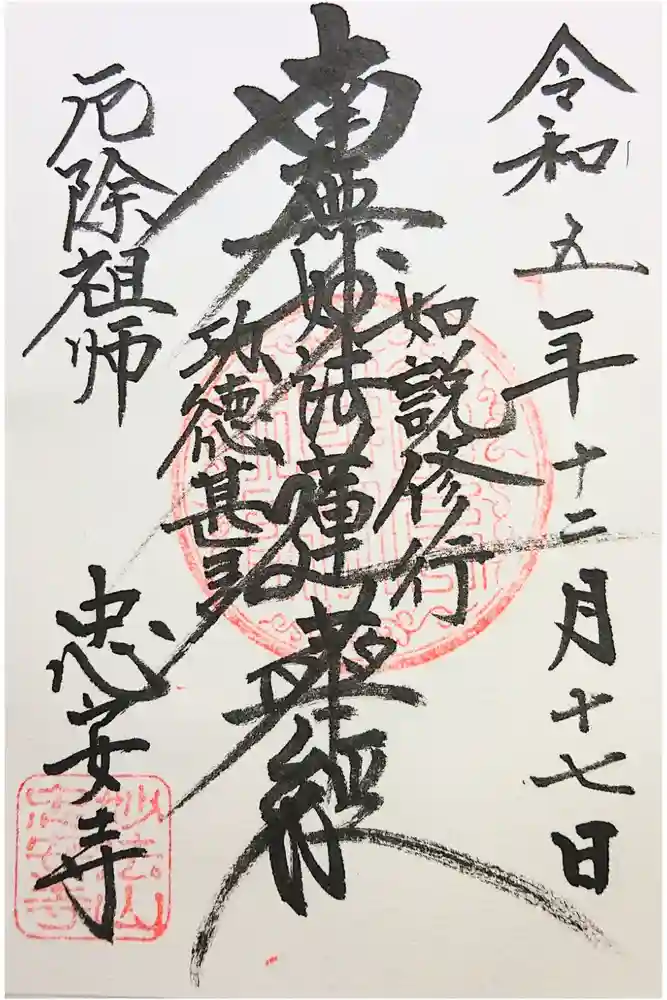 令和五年十二月十七日
如説修行
南無妙法蓮華経
功徳甚多
厄除祖師
忠安寺